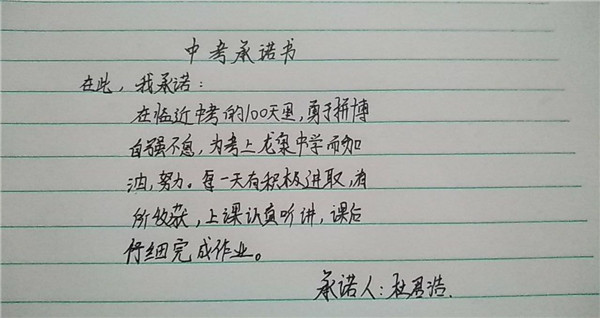 中考承诺书
在此，我承诺：
在临近中考的100天里，勇于拼博
自强不息，为考上龙泉中学而加
油，努力。每一天有积极进取，有
所收获，上课认真听讲，课后
仔细完成作业。
承诺人：杜君浩.